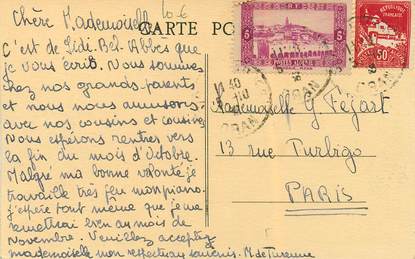 Chère Mademoiselle
10 €
CARTE PO
C'est de Sidi-Bel-Abbès que
je vous écris. Nous sommes
chez nos grands-parents
et nous nous amusons
avec nos cousins et cousines
Nous espérons rentrer vers
la fin du mois d'Octobre.
Malgré ma bonne volonté je
travaille très peu mon piano.
j'espère tout même que je me
remettrai bien au mois de
Novembre. Veuillez accepter
mademoiselle mon respectueux souvenir. M de Turenne
5
5
POSTES ALGERIE
REPUBLIQUE
FRANÇAISE
50
ORAN
ORAN
Mademoiselle G. Fejart
13 rue Turbigo
PARIS